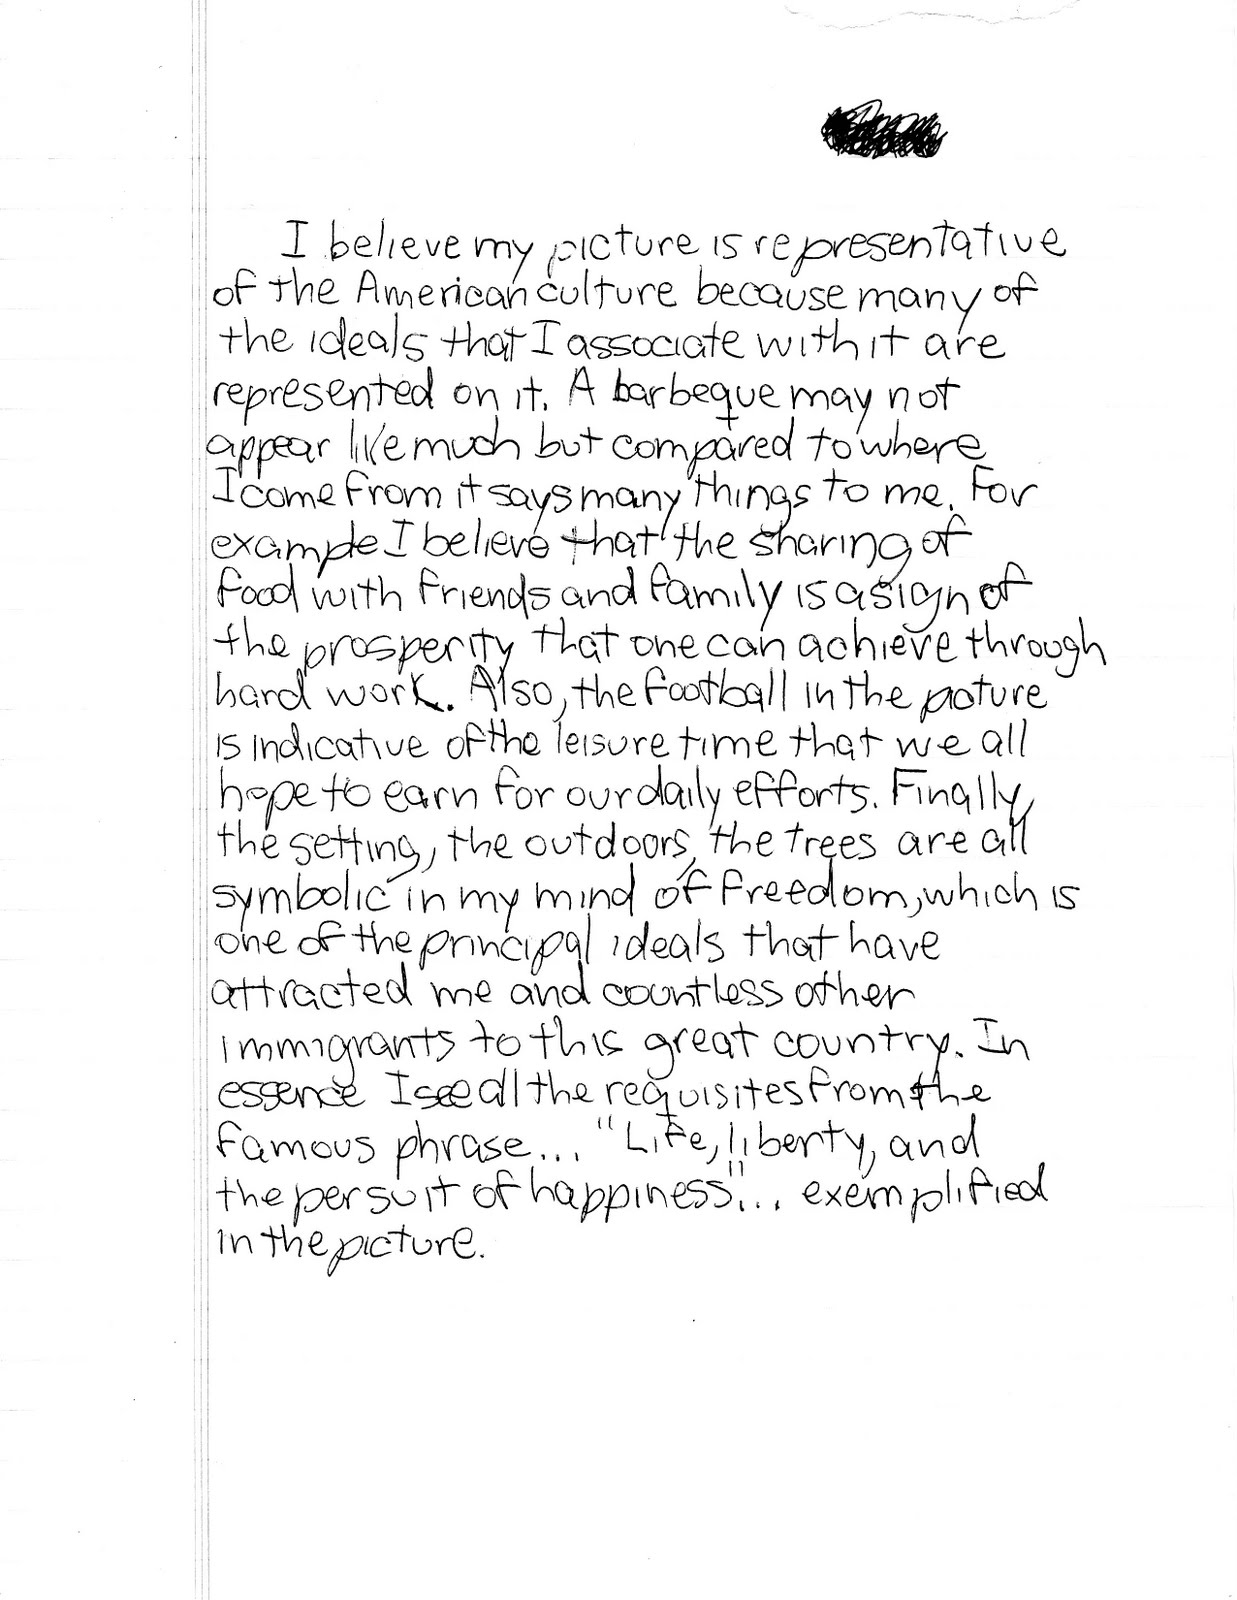 I believe my picture is representative
of the American culture because many of
the ideals that I associate with it are
represented on it. A barbeque may not
appear like much but compared to where
I come from it says many things to me. For
example I believe that the sharing of
food with friends and family is a sign of
the prosperity that one can achieve through
hard work. Also, the football in the picture
is indicative of the leisure time that we all
hope to earn for our daily efforts. Finally,
the setting, the outdoors, the trees are all
symbolic in my mind of freedom, which is
one of the principal ideals that have
attracted me and countless other
immigrants to this great country. In
essence I see all the requisites from the
famous phrase... "Life, liberty, and
the persuit of happiness"... exemplified
in the picture.